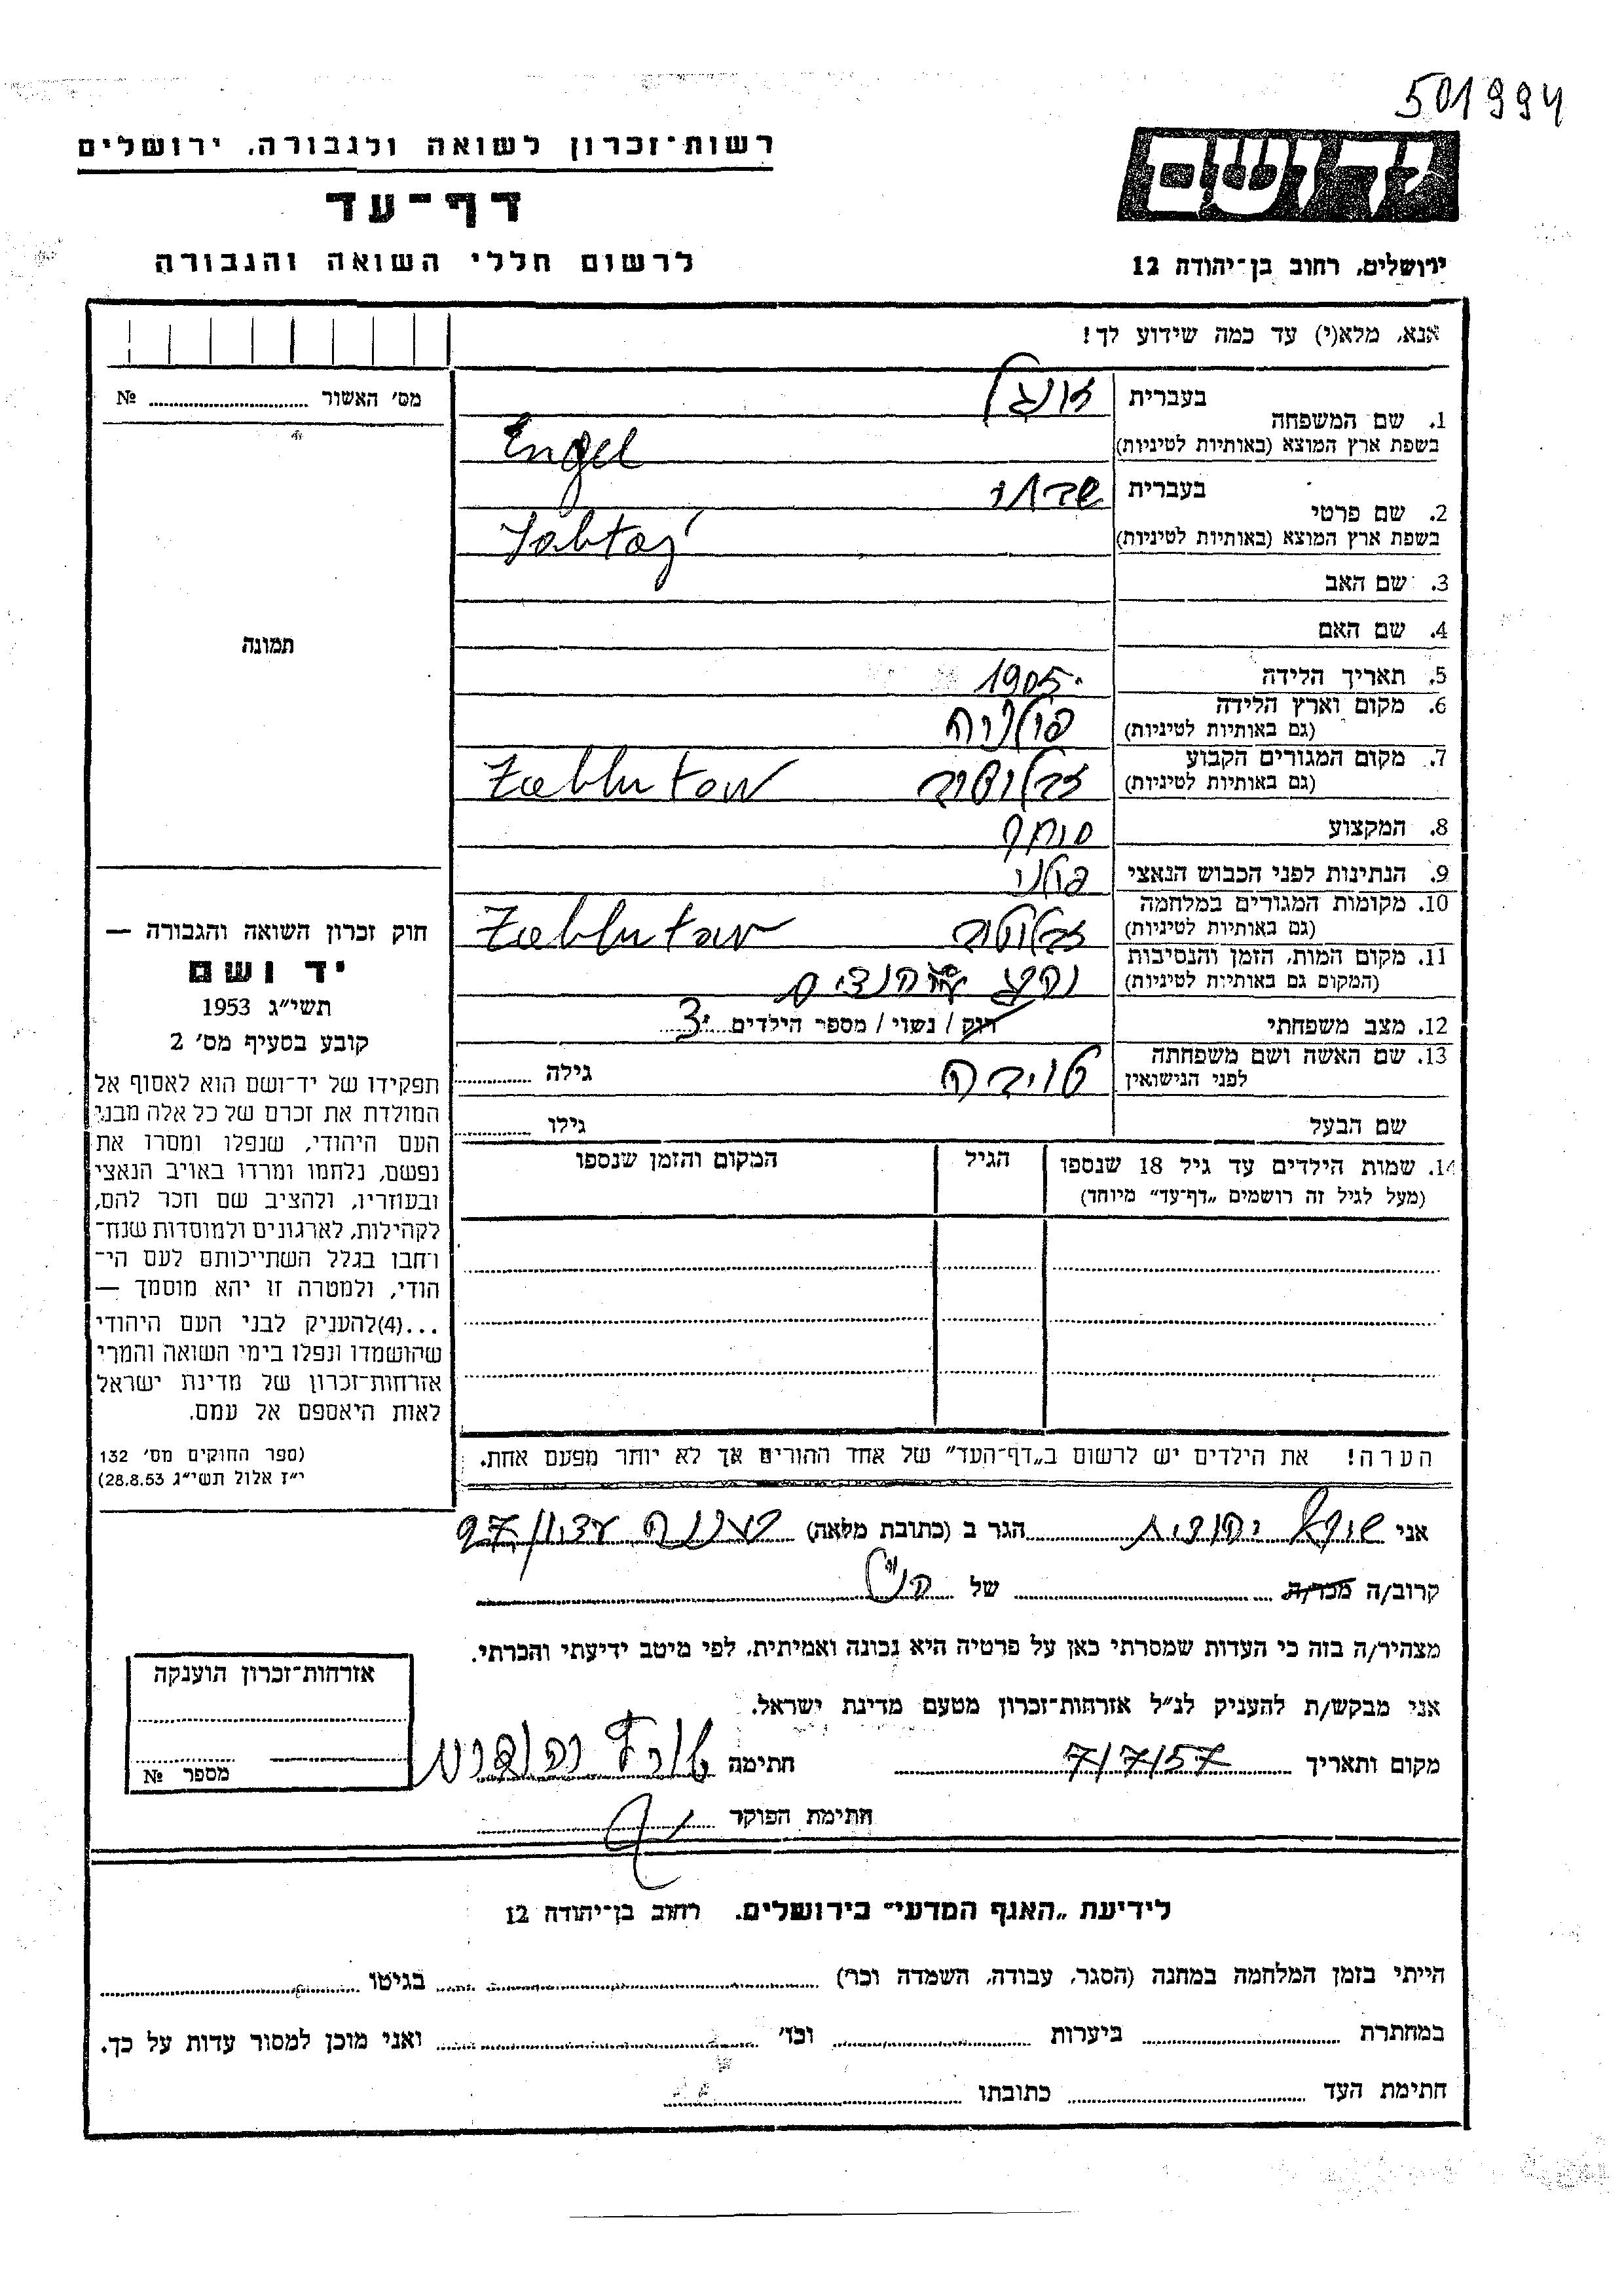 501994
רשות־זכרון לשואה ולגבורה, ירושלים
דף־עד
לרשום חללי השואה והגבורה
יד ושם
ירושלים, רחוב בן־יהודה 12
אנא, מלא(י) עד כמה שידוע לך!
מס' האשור № 
תמונה
בעברית אנגל
1. שם המשפחה
בשפת ארץ המוצא (באותיות לטיניות) Engel
בעברית שבתי
2. שם פרטי
בשפת ארץ המוצא (באותיות לטיניות) Sabtaj
3. שם האב
4. שם האם
5. תאריך הלידה 1905
6. מקום וארץ הלידה פולניה
(גם באותיות לטיניות)
7. מקום המגורים הקבוע זבלוטוב Zablutow
(גם באותיות לטיניות)
8. המקצוע סוחר
9. הנתינות לפני הכבוש הנאצי פולני
10. מקומות המגורים במלחמה זבלוטוב Zablutow
(גם באותיות לטיניות)
11. מקום המות, הזמן והנסיבות
(המקום גם באותיות לטיניות)
12. מצב משפחתי רוק / נשוי / מספר הילדים 3
13. שם האשה ושם משפחתה טויבה גילה
לפני הנישואין
שם הבעל גילו
14. שמות הילדים עד גיל 18 שנספו הגיל המקום והזמן שנספו
(מעל לגיל זה רושמים „דף־עד” מיוחד)
הערה! את הילדים יש לרשום ב„דף־העד” של אחד ההורים אך לא יותר מפעם אחת.
חוק זכרון השואה והגבורה —
יד ושם
תשי״ג 1953
קובע בסעיף מס' 2
תפקידו של יד־ושם הוא לאסוף אל
המולדת את זכרם של כל אלה מבני
העם היהודי, שנפלו ומסרו את
נפשם, נלחמו ומרדו באויב הנאצי
ובעוזריו, ולהציב שם וזכר להם,
לקהילות, לארגונים ולמוסדות שנח־
רבו בגלל השתייכותם לעם הי־
הודי, ולמטרה זו יהא מוסמך —
...(4)להעניק לבני העם היהודי
שהושמדו ונפלו בימי השואה והמרי
אזרחות־זכרון של מדינת ישראל
לאות היאספם אל עמם.
(ספר החוקים מס' 132
י״ז אלול תשי״ג 28.8.53)
אני יהודית הגר ב (כתובת מלאה) רעננה 97
קרוב/ה מכר/ה של הנ״ל
מצהיר/ה בזה כי העדות שמסרתי כאן על פרטיה היא נכונה ואמיתית, לפי מיטב ידיעתי והכרתי.
אני מבקש/ת להעניק לנ״ל אזרחות־זכרון מטעם מדינת ישראל.
מקום ותאריך 7/7/57 חתימה
חתימת הפוקד
אזרחות־זכרון הוענקה
מספר №
לידיעת „האגף המדעי” בירושלים. רחוב בן־יהודה 12
הייתי בזמן המלחמה במחנה (הסגר, עבודה, השמדה וכו') בגיטו
במחתרת ביערות וכו' ואני מוכן למסור עדות על כך.
חתימת העד כתובתו